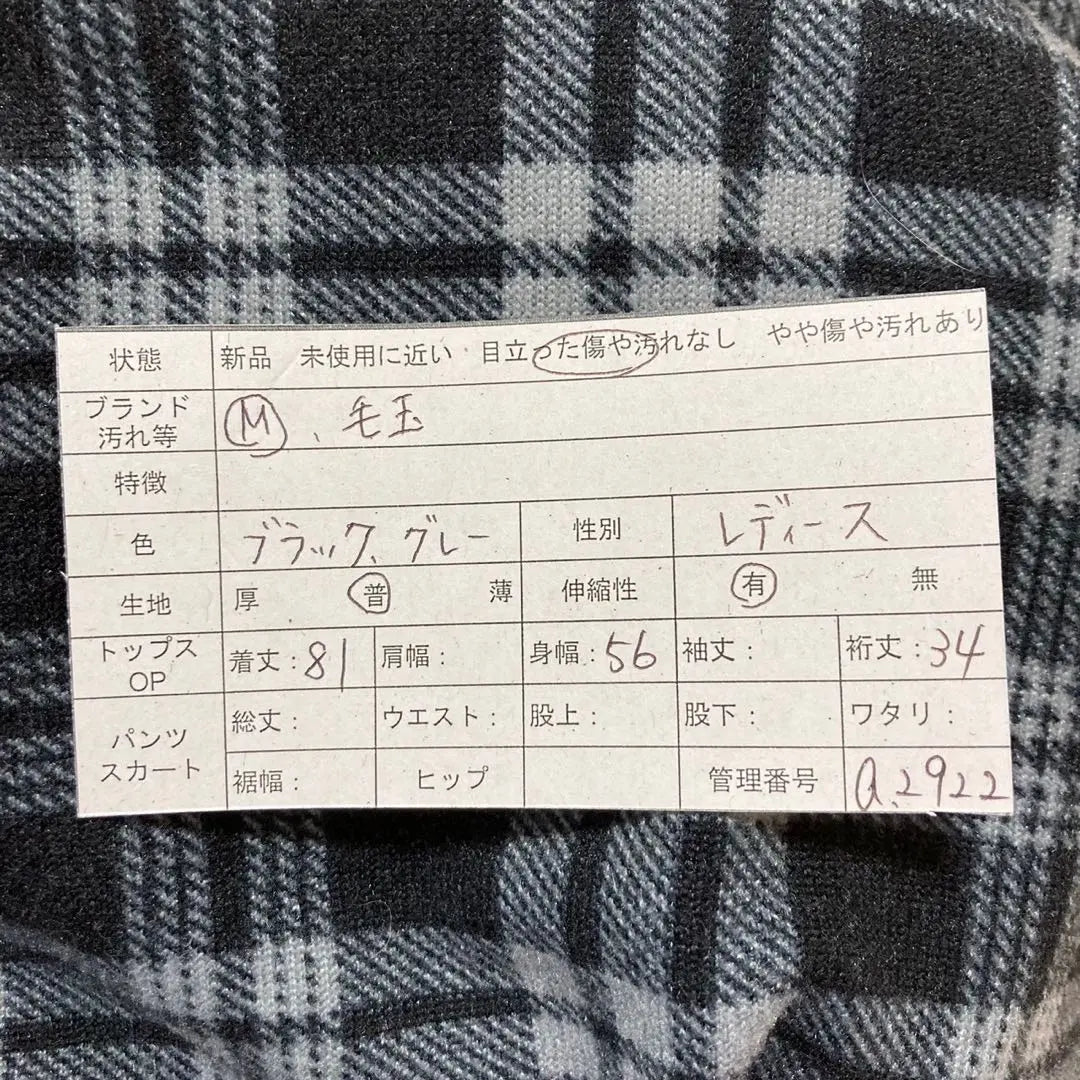 状態 新品 未使用に近い 目立った傷や汚れなし やや傷や汚れあり
ブランド
汚れ等 M、毛玉
特徴
色 ブラック、グレー 性別 レディース
生地 厚 普 薄 伸縮性 有 無
トップス
OP 着丈:81 肩幅: 身幅:56 袖丈: 裄丈:34
パンツ
スカート 総丈: ウエスト: 股上: 股下: ワタリ:
裾幅: ヒップ 管理番号 a.2922